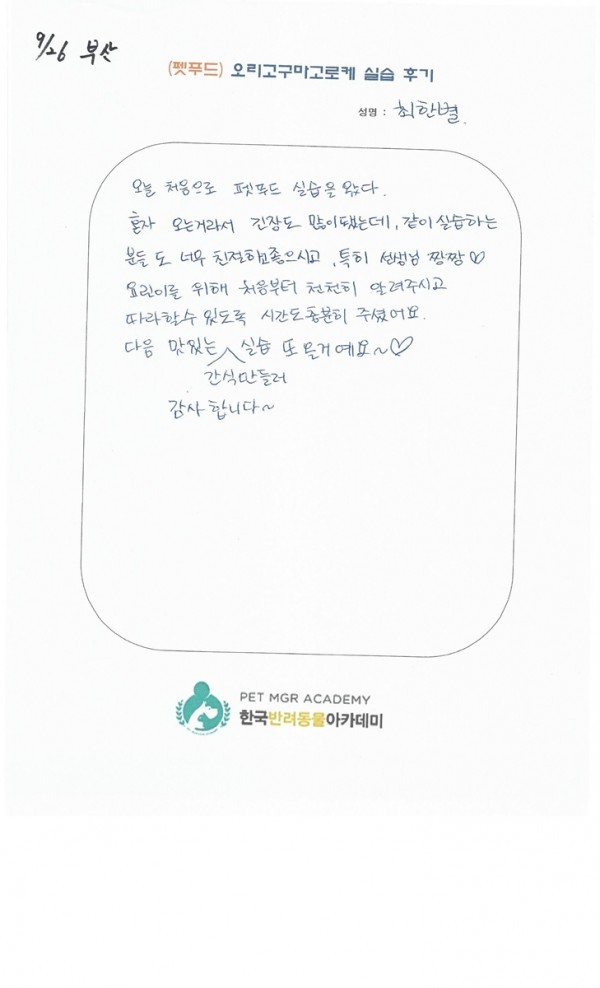 9/26 부산
(펫푸드) 오리고구마고로케 실습 후기
성명 : 최한별
오늘 처음으로 펫푸드 실습을 왔다.
혼자 오는거라서 긴장도 많이됐는데, 같이 실습하는
분들도 너무 친절하고좋으시고, 특히 선생님 짱짱♡
요린이를 위해 처음부터 천천히 알려주시고
따라할수 있도록 시간도충분히 주셨어요.
다음 맛있는 실습 또 올거예요~♡
간식만들러
감사합니다~
PET MGR ACADEMY
한국반려동물아카데미